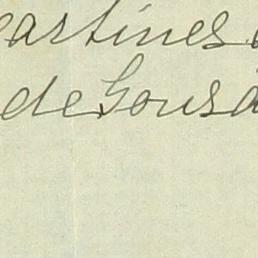 eartines
de Sousa